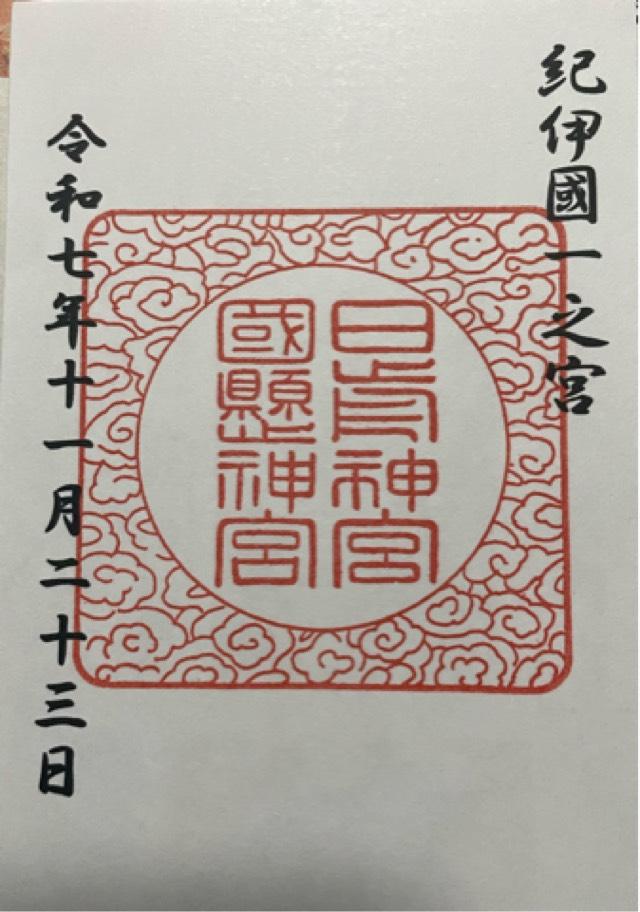 紀伊國一之宮
日前神宮
國懸神宮
令和七年十一月二十三日